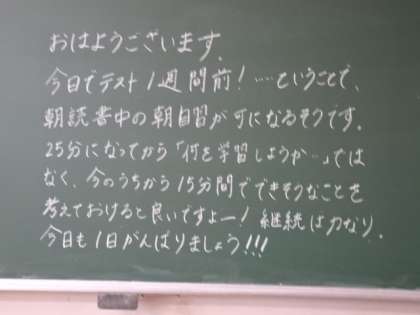 おはようございます。
今日でテスト1週間前!……ということで、
朝読書中の朝自習が可になるそうです。
25分になってから「何を学習しようか…」では
なく、今のうちから15分間でできそうなことを
考えておけると良いですよー!継続は力なり。
今日も1日がんばりましょう!!!